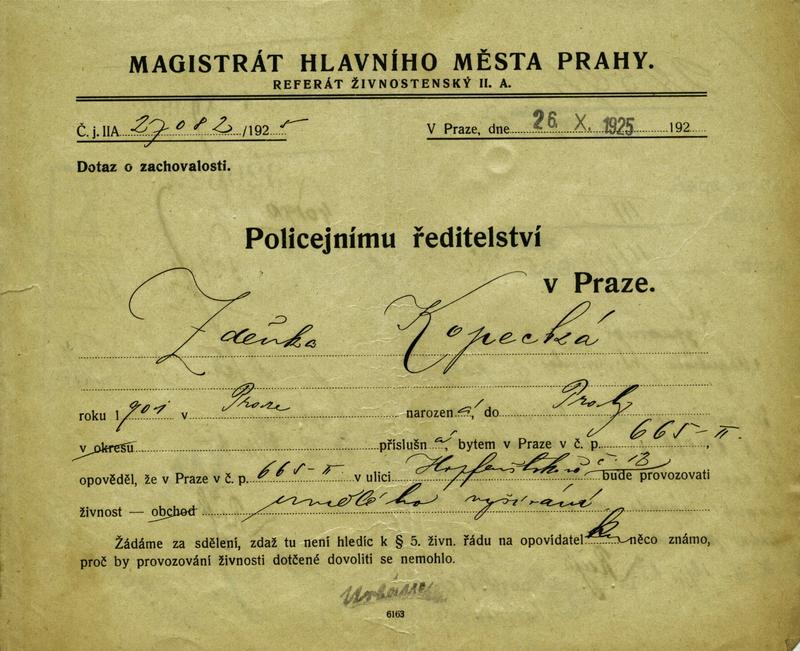 MAGISTRÁT HLAVNÍHO MĚSTA PRAHY.
REFERÁT ŽIVNOSTENSKÝ II. A.
Č. j. IIA 27082 /1925
V Praze, dne 26. X. 1925 192
Dotaz o zachovalosti.
Policejnímu ředitelství
v Praze.
Zdeňka Kopecká
roku 1901 v Praze narozená, do Prahy
v okresu příslušná, bytem v Praze v č. p. 665-II.,
opověděl, že v Praze v č. p. 665-II v ulici č. 13 bude provozovati
živnost — obchod umělého vyšívání
Žádáme za sdělení, zdaž tu není hledíc k § 5. živn. řádu na opovídatelku něco známo,
proč by provozování živnosti dotčené dovoliti se nemohlo.
6163